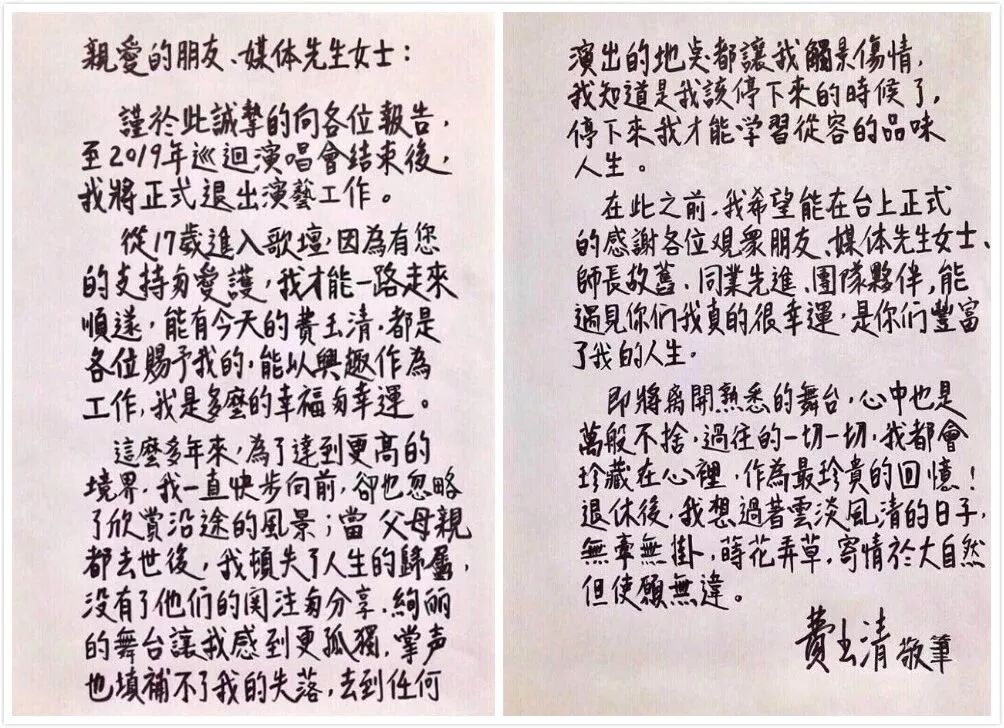 親愛的朋友、媒体先生女士：
謹於此誠摯的向各位報告，
至2019年巡迴演唱會結束後，
我將正式退出演藝工作。
從17歲進入歌壇，因為有您
的支持与愛護，我才能一路走來
順遂，能有今天的費玉清，都是
各位賜予我的，能以興趣作為
工作，我是多麼的幸福与幸運。
這麼多年來，為了達到更高的
境界，我一直快步向前，卻也忽略
了欣賞沿途的風景；當父母親
都去世後，我頓失了人生的歸屬，
没有了他們的関注与分享，絢丽
的舞台讓我感到更孤獨，掌声
也填補不了我的失落，去到任何
演出的地点都讓我觸景傷情，
我知道是我該停下來的時候了，
停下來我才能学習從容的品味
人生。
在此之前，我希望能在台上正式
的感謝各位观眾朋友、媒体先生女士、
師長故舊、同業先進、團隊夥伴，能
遇見你们我真的很幸運，是你们豐富
了我的人生。
即將离開熟悉的舞台，心中也是
萬般不捨，過往的一切一切，我都會
珍藏在心裡，作為最珍貴的回憶！
退休後，我想過著雲淡風清的日子，
無牽無掛，蒔花弄草，寄情於大自然
但使願無違。
費玉清 敬筆